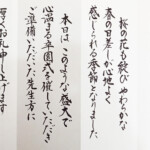 桜の花も綻び やわらかな
春の日差しが心地よく
感じられる季節となりました
本日は このような盛大で
心温まる卒園式を催していただき
ご準備いただいた先生方に
厚くお礼申し上げます